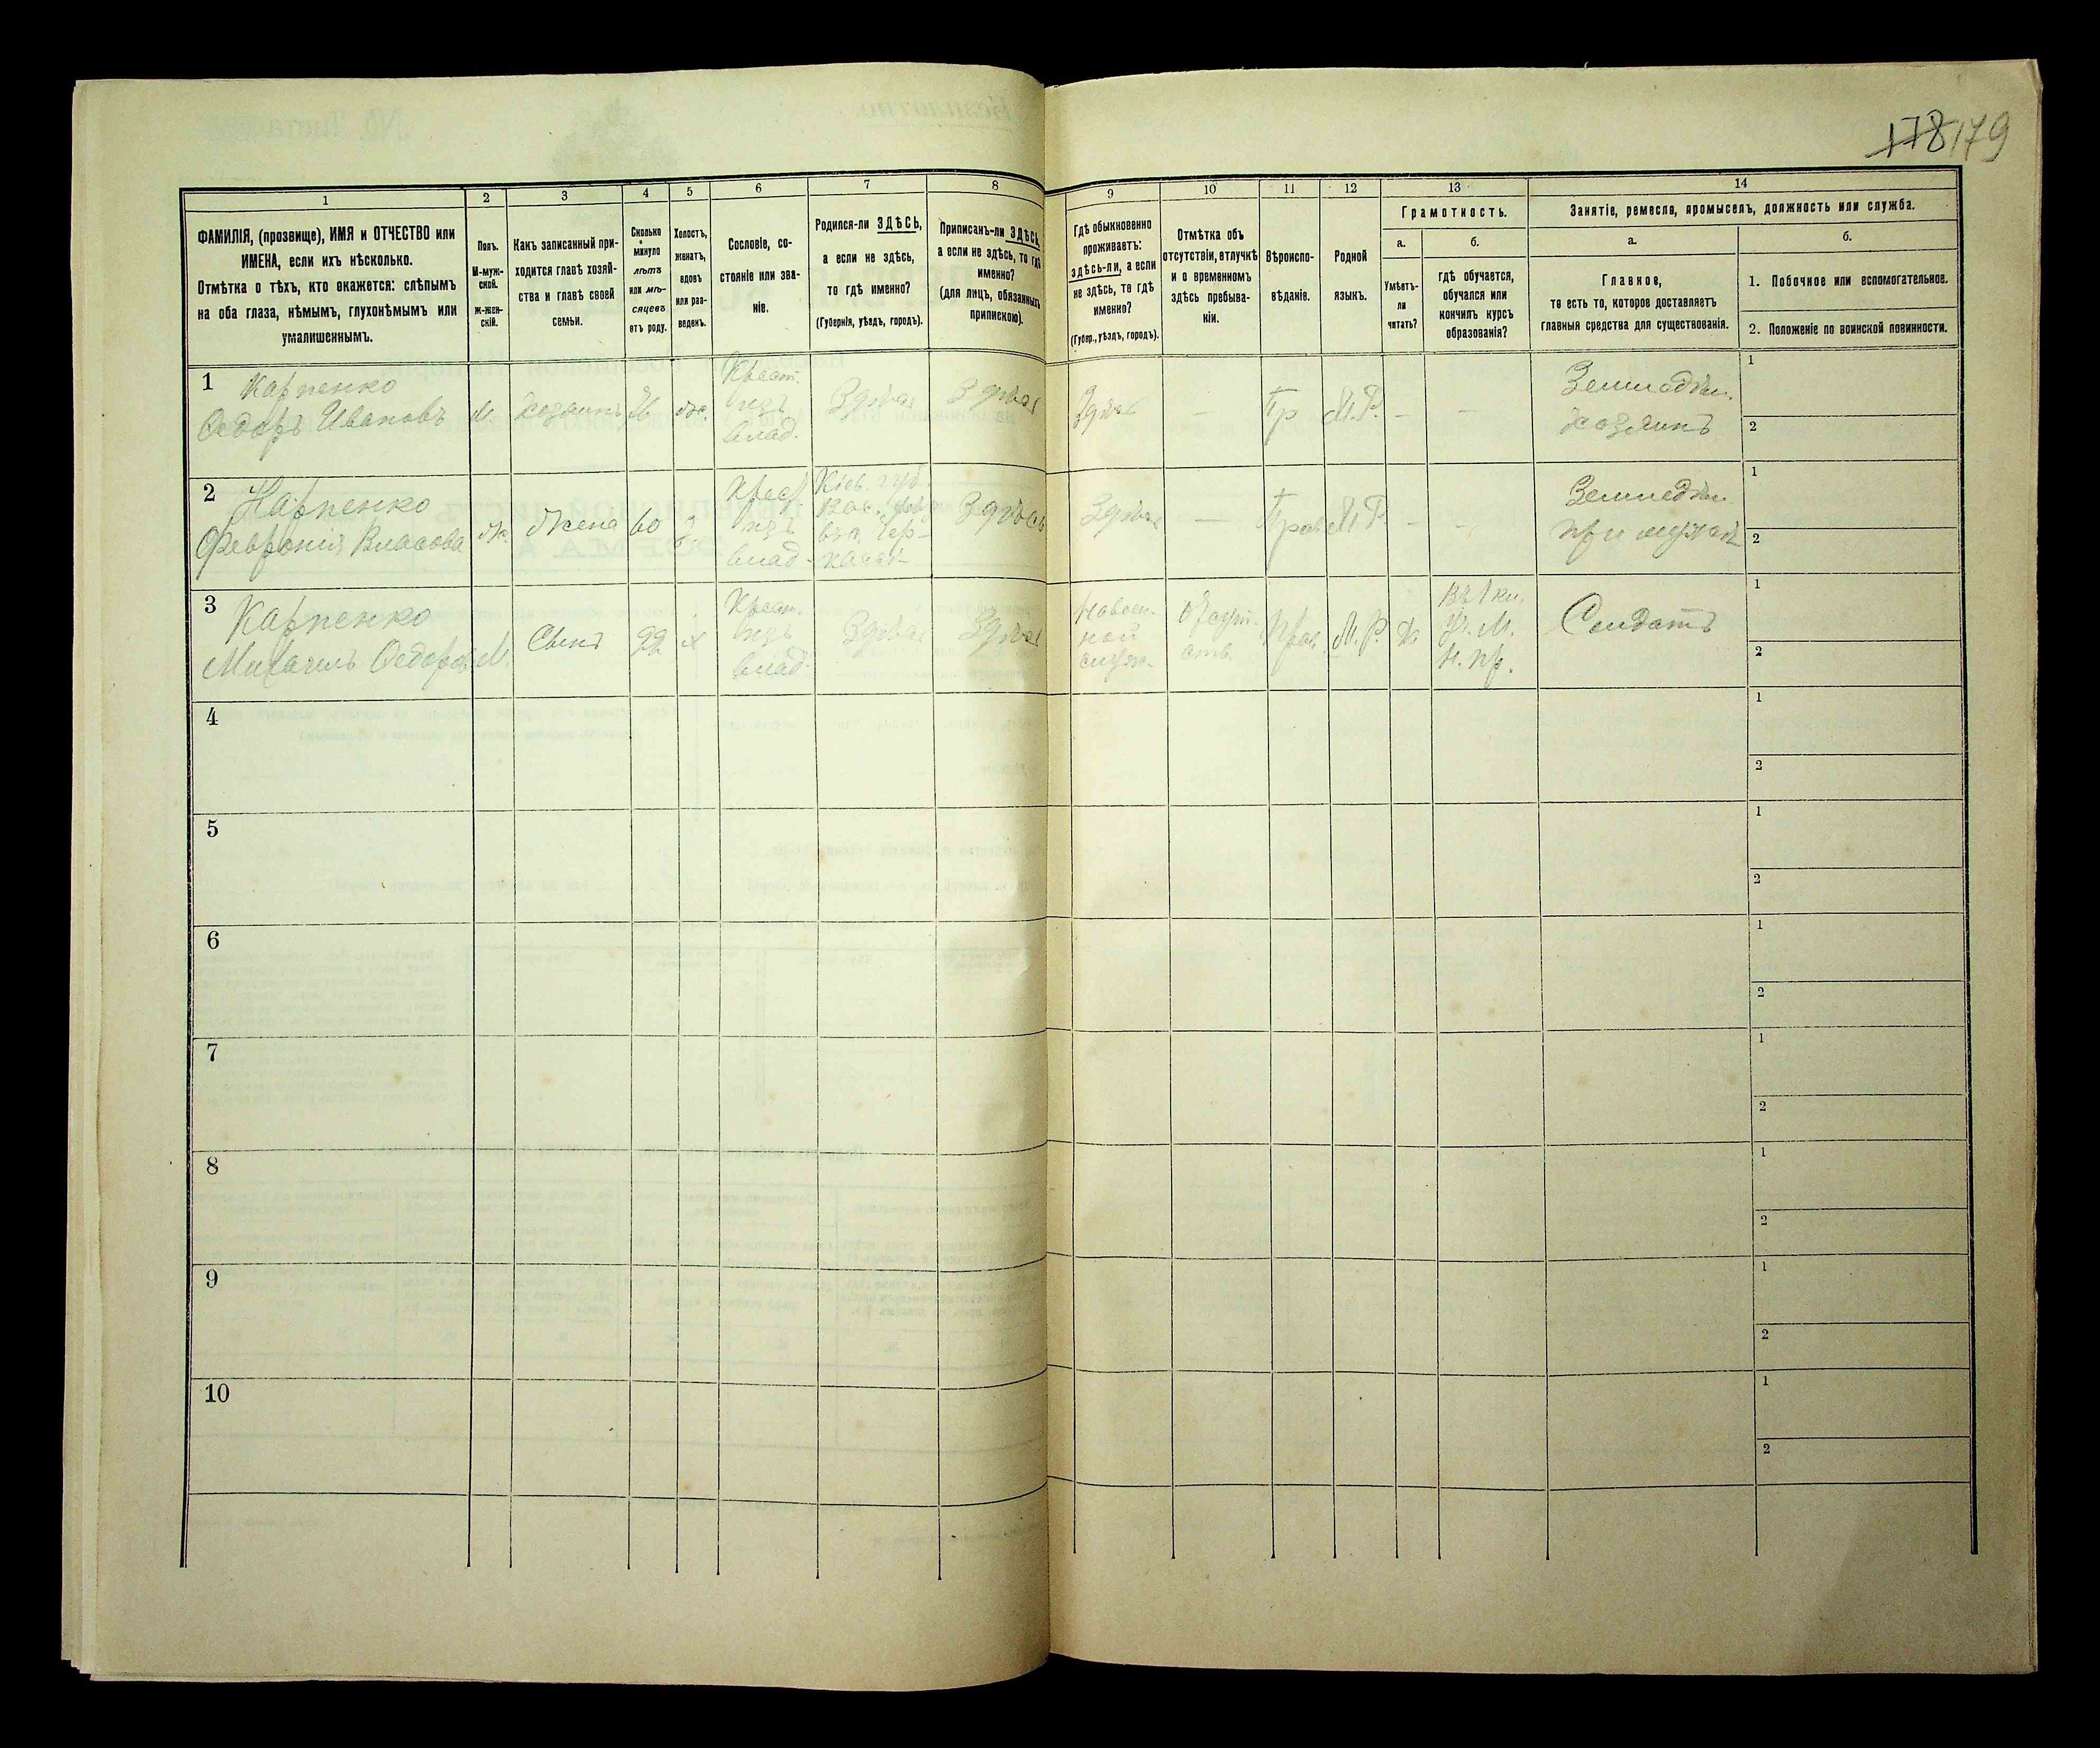 178 179
1 2 3 4 5 6 7 8 9 10 11 12 13 14
ФАМИЛІЯ, (прозвище), ИМЯ и ОТЧЕСТВО или
ИМЕНА, если ихъ нѣсколько.
Отмѣтка о тѣхъ, кто окажется: слѣпымъ
на оба глаза, нѣмымъ, глухонѣмымъ или
умалишеннымъ.
Полъ.
М-муж-
ской.
Ж-жен-
скій.
Какъ записанный при-
ходится главѣ хозяй-
ства и главѣ своей
семьи.
Сколько
минуло
лѣтъ
или мѣ-
сяцевъ
отъ роду.
Холостъ,
женатъ,
вдовъ
или раз-
веденъ.
Сословіе, со-
стояніе или зва-
ніе.
Родился-ли ЗДѢСЬ,
а если не здѣсь,
то гдѣ именно?
(Губернія, уѣздъ, городъ).
Приписанъ-ли ЗДѢСЬ,
а если не здѣсь, то гдѣ
именно?
(для лицъ, обязанныхъ
припискою).
Гдѣ обыкновенно
проживаетъ:
здѣсь-ли, а если
не здѣсь, то гдѣ
именно?
(Губер., уѣздъ, городъ).
Отмѣтка объ
отсутствіи, отлучкѣ
и о временномъ
здѣсь пребыва-
ніи.
Вѣроиспо-
вѣданіе.
Родной
языкъ.
Грамотность.
а.
Умѣетъ-
ли
читать?
б.
гдѣ обучается,
обучался или
кончилъ курсъ
образованія?
Занятіе, ремесло, промыселъ, должность или служба.
а.
Главное,
то есть то, которое доставляетъ
главныя средства для существованія.
б.
1. Побочное или вспомогательное.
2. Положеніе по воинской повинности.
1 Карпенко
Ѳедоръ Ивановъ
М.
Хозяинъ
ж.
Крест.
изъ
влад.
Здѣсь
Здѣсь
Здѣсь
—
Пр
М.Р.
—
—
Земледѣл.
хозяинъ
1
2
2 Карпенко
Февронія Власова
ж.
Жена
60
з.
Крест
изъ
влад.
Кіев. губ.
Здѣсь
Здѣсь
—
Прав
М.Р.
—
—
Земледѣл.
при мужѣ
1
2
3 Карпенко
Михаилъ Ѳедоров
М.
Сынъ
22
х
Крест.
изъ
влад.
Здѣсь
Здѣсь
На воен-
ной
служ.
Отсут-
ств.
Прав.
М.Р.
Да
Н. М.
Н. пр.
Солдатъ
1
2
4
1
2
5
1
2
6
1
2
7
1
2
8
1
2
9
1
2
10
1
2